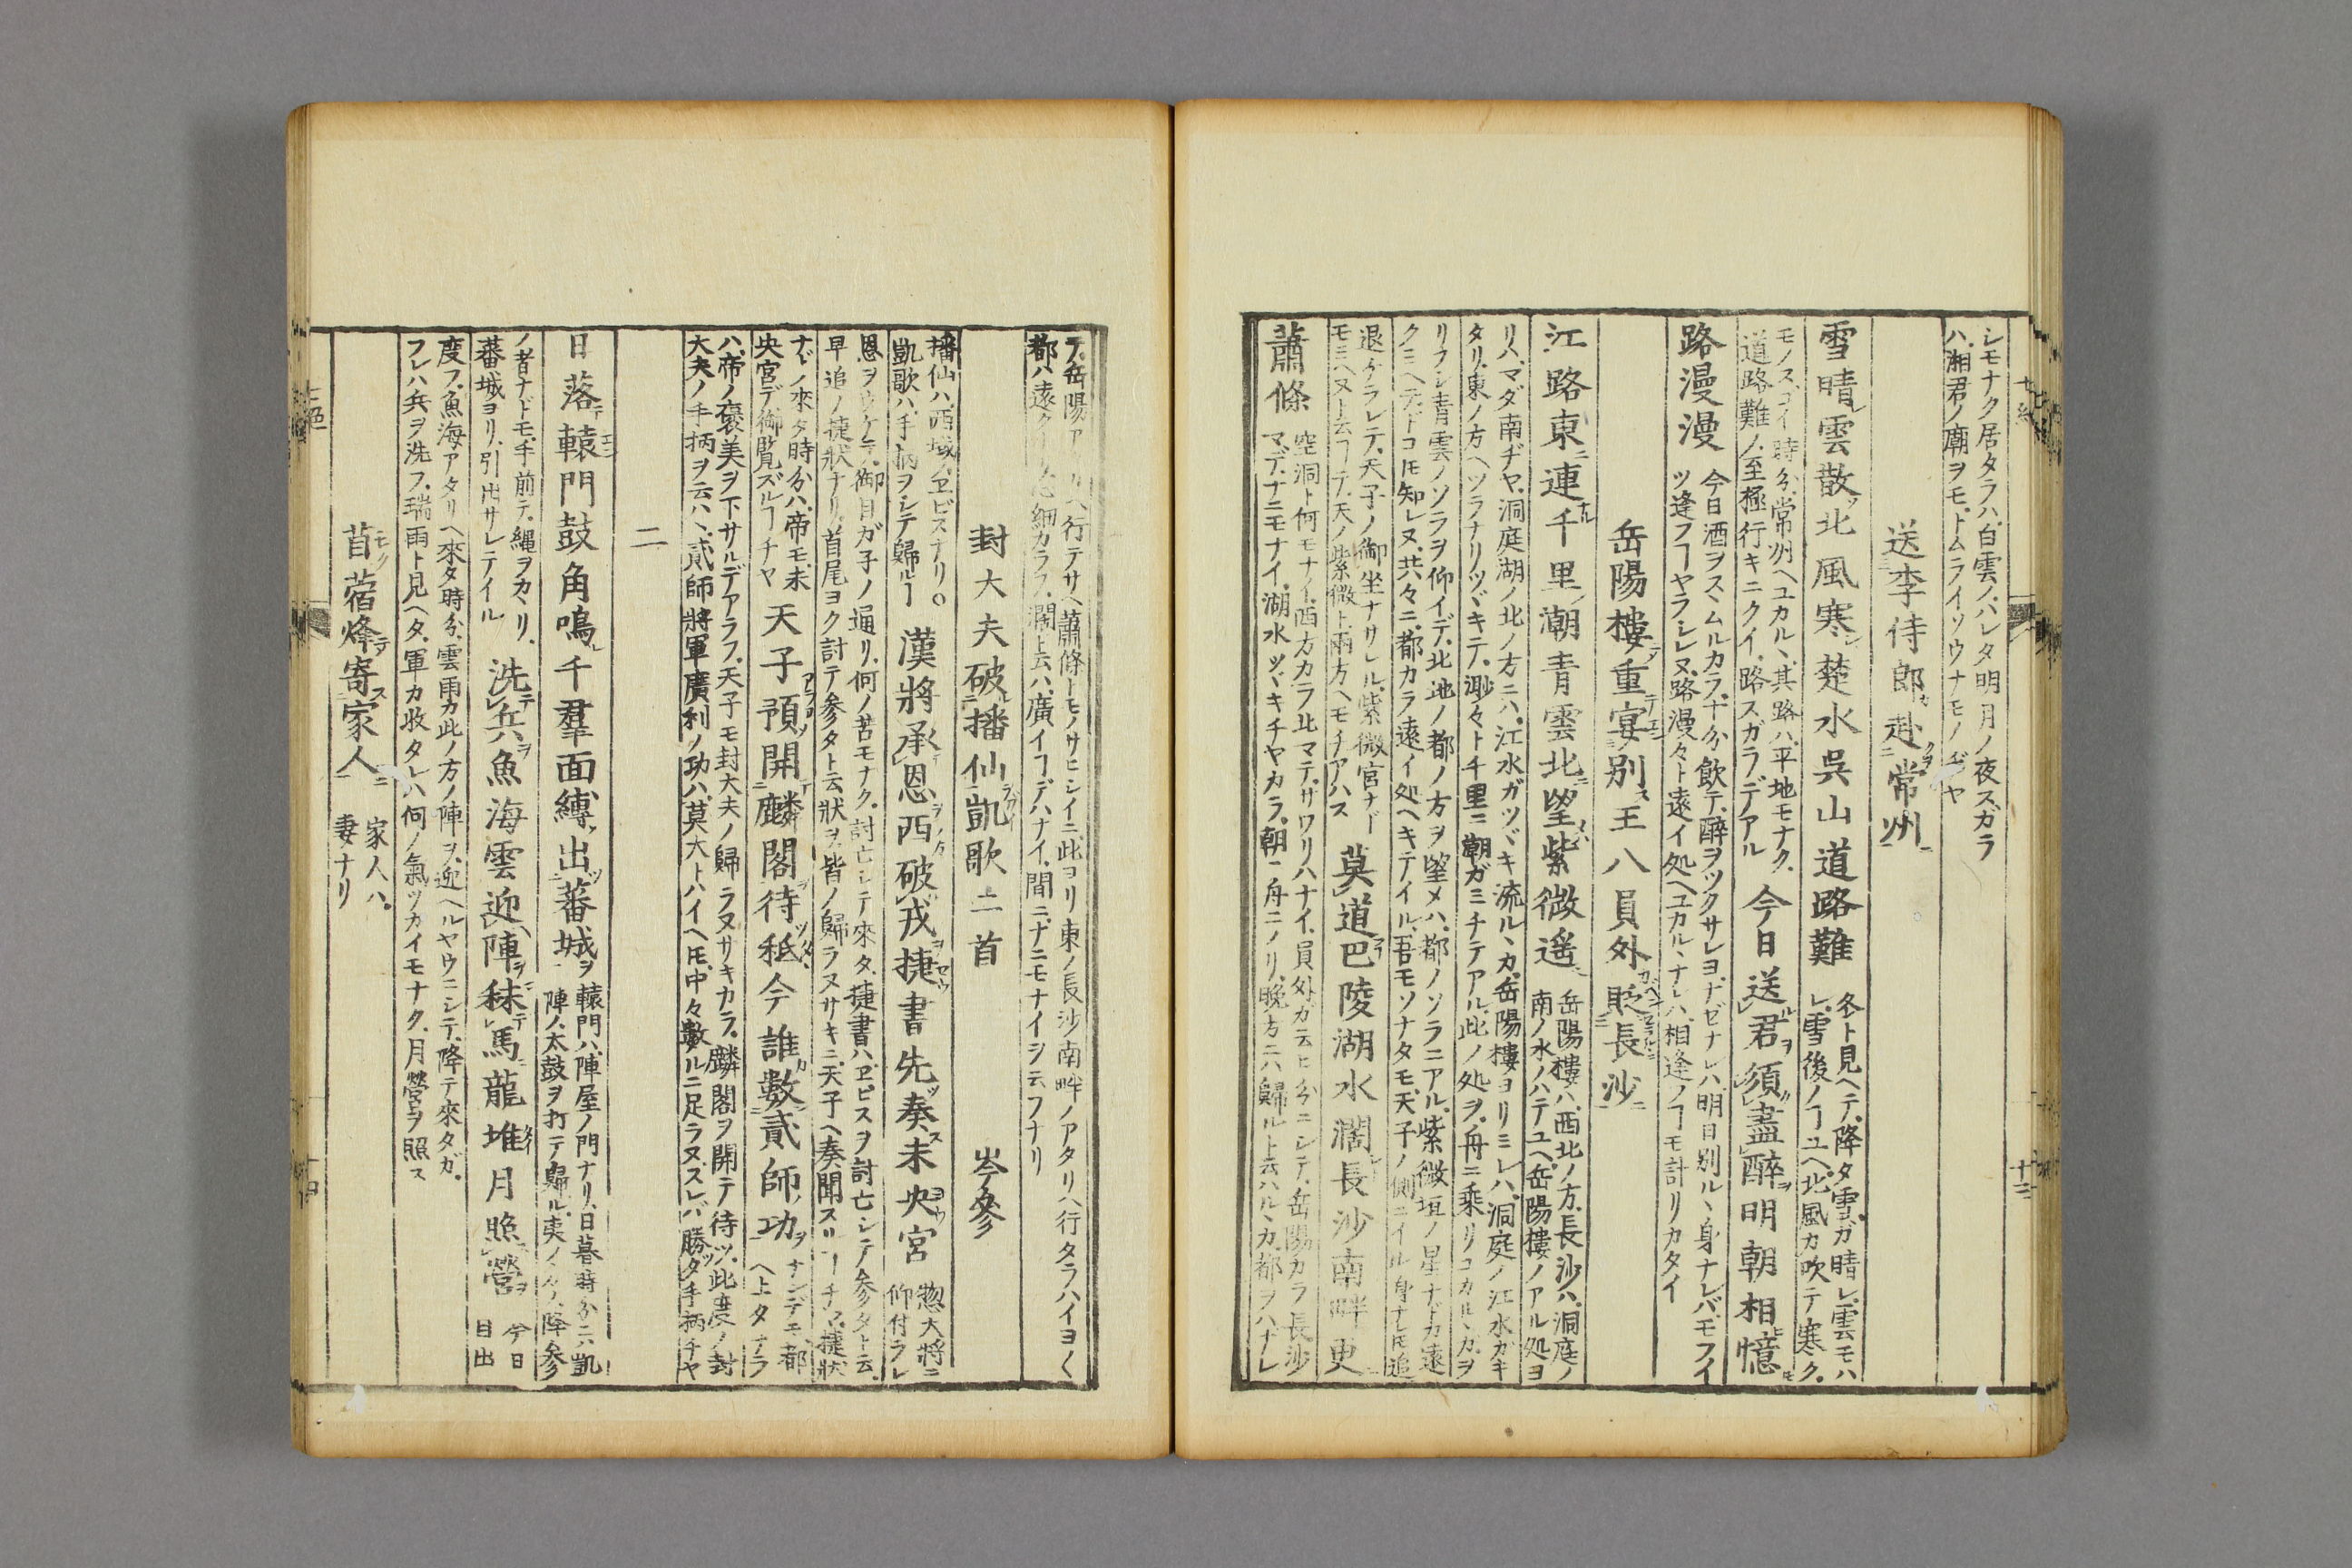 シモナク居タラハ、白雲ノハレタ明月ノ夜スガラ
ハ、湘君ノ廟ヲモ、トムライソウナモノヂヤ
送李侍郎赴常州
雪晴雲散北風寒楚水吳山道路難
冬ト見ヘテ、降タ雪ガ晴レ、雲モハ
レ、雪後ノヿユヘ、北風カ吹テ寒ク、
モノスゴイ時分、常州ヘユカル、其路ハ、平地モナク、
道路難ノ至極行キニクイ、路スガラデアル
今日送君須盡醉明朝相憶
路漫漫
今日酒ヲスヽムルカラ、十分飲テ、醉ヲツクサレヨ、ナゼナレハ、明日別ルヽ身ナレバ、モフイ
ツ逢フヿヤラシレヌ、路漫々ト遠イ処ヘユカルヽナレハ、相逢ノヿモ計リカタイ
岳陽樓重宴別王八員外貶長沙
江路東連千里潮青雲北望紫微遥
岳陽樓ハ、西北ノ方、長沙ハ、洞庭ノ
南ノ水ノハテユヘ、岳陽樓ノアル処ヨ
リハ、マダ南ヂヤ、洞庭湖ノ北ノ方ニハ、江水ガツヾキ流ルヽカ、岳陽樓ヨリミレハ、洞庭ノ江水カキ
タリ、東ノ方ヘツラナリツヾキテ、渺々ト千里ニ潮ガミチテアル、此ノ処ヲ、舟ニ乘リユカルヽカ、ヲ
リフシ青雲ノソラヲ仰イデ、北地ノ都ノ方ヲ望メハ、都ノソラニアル、紫微垣ノ星ナドカ遠
クミヘテ、ドコトモ知レヌ、共々ニ、都カラ遠イ処ヘキテイル、吾モソナタモ、天子ノ側ニイル身ナレトモ追
退ケラレテ、天子ノ御坐ナサレル、紫微宮ナド
モミヘヌト云ヿテ、天ノ紫微ト、兩方ヘモチアハス
莫道巴陵湖水濶長沙南畔更
蕭條
空洞ト何モナイ、西方カラ北マテ、サワリハナイ、員外ガ云ヒ分ニシテ、岳陽カラ長沙
マデ、ナニモナイ、湖水ツヾキチヤカラ、朝ニ舟ニノリ、晩方ニハ歸ルト云ハルヽカ、都ヲハナレ
テ、岳陽アタリヘ行テサヘ蕭條トモノサヒシイニ、此ヨリ東ノ長沙南畔ノアタリヘ行タラハ、イヨ〱
都ハ遠クナリ心細カラフ、濶ト云ハ、廣イヿデハナイ、間ニナニモナイヲ云フナリ
封大夫破播仙凱歌二首
岑參
播仙ハ、西域ノヱビスナリ〇
凱歌ハ、手柄ヲシテ歸ルヿ
漢將承恩西破戎捷書先奏未央宮
惣大將ニ
仰付ラレ
恩ヲウケテ、御目ガ子ノ通リ、何ノ苦モナク、討亡シテ來タ、捷書ハ、ヱビスヲ討亡シテ參タト云、
早追ノ捷狀ナリ、首尾ヨク討テ參タト云狀ヲ、皆ノ歸ラヌサキニ、天子ヘ奏聞スルヿチヤ、捷狀
ナドノ來タ時分ハ、帝モ、未
央宮デ御覽ズルヿチヤ
天子預開麟閣待秖今誰數貳師功
ナンデモ、都
ヘ上タナラ
ハ、帝ノ襃美ヲ下サルデアラフ、天子モ封大夫ノ歸ラヌサキカラ、麟閣ヲ開テ待ツ、此度ノ封
大夫ノ手柄ヲ云ハヽ、貳師將軍廣利ノ功ハ、莫大トハイヘトモ、中々數ルニ足ラヌ、スレバ勝ツタ手柄チヤ
二
日落轅門鼓角鳴千羣面縛出蕃城
轅門ハ、陣屋ノ門ナリ、日暮時分ニハ、凱
陣ノ太鼓ヲ打テ歸ル、夷ノ久々、降參
ノ者ナドモ、手前テ、繩ヲカヽリ、
蕃城ヨリ、引出サレテイル
洗兵魚海雲迎陣秣馬龍堆月照營
今日
日出
度フ、魚海アタリヘ來タ時分、雲雨カ此ノ方ノ陣ヲ、迎ヘルヤウニシテ、降テ來タガ、
フレハ兵ヲ洗フ、瑞雨ト見ヘタ、軍カ收タレハ何ノ氣ツカイモナク、月營ヲ照ス
苜蓿烽寄家人
家人ハ、
妻ナリ